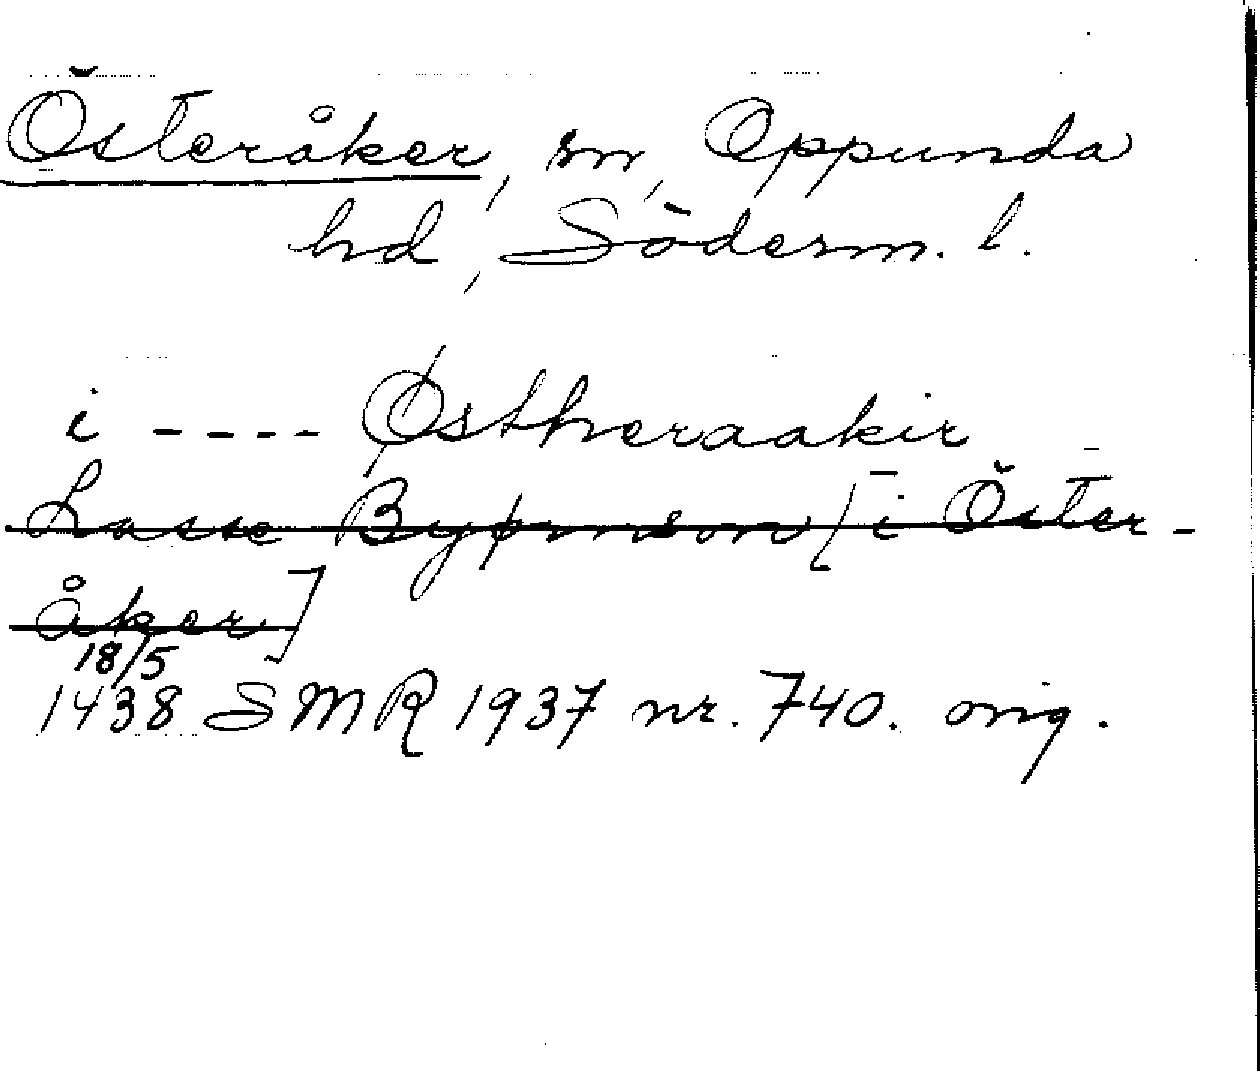 Österåker, sn, Oppunda
hd, Söderm. l.
i ---- Østheraakir
Lasse Byørnson [i Öster-
åker]
18/5
1438 SMR 1937 nr. 740. orig.